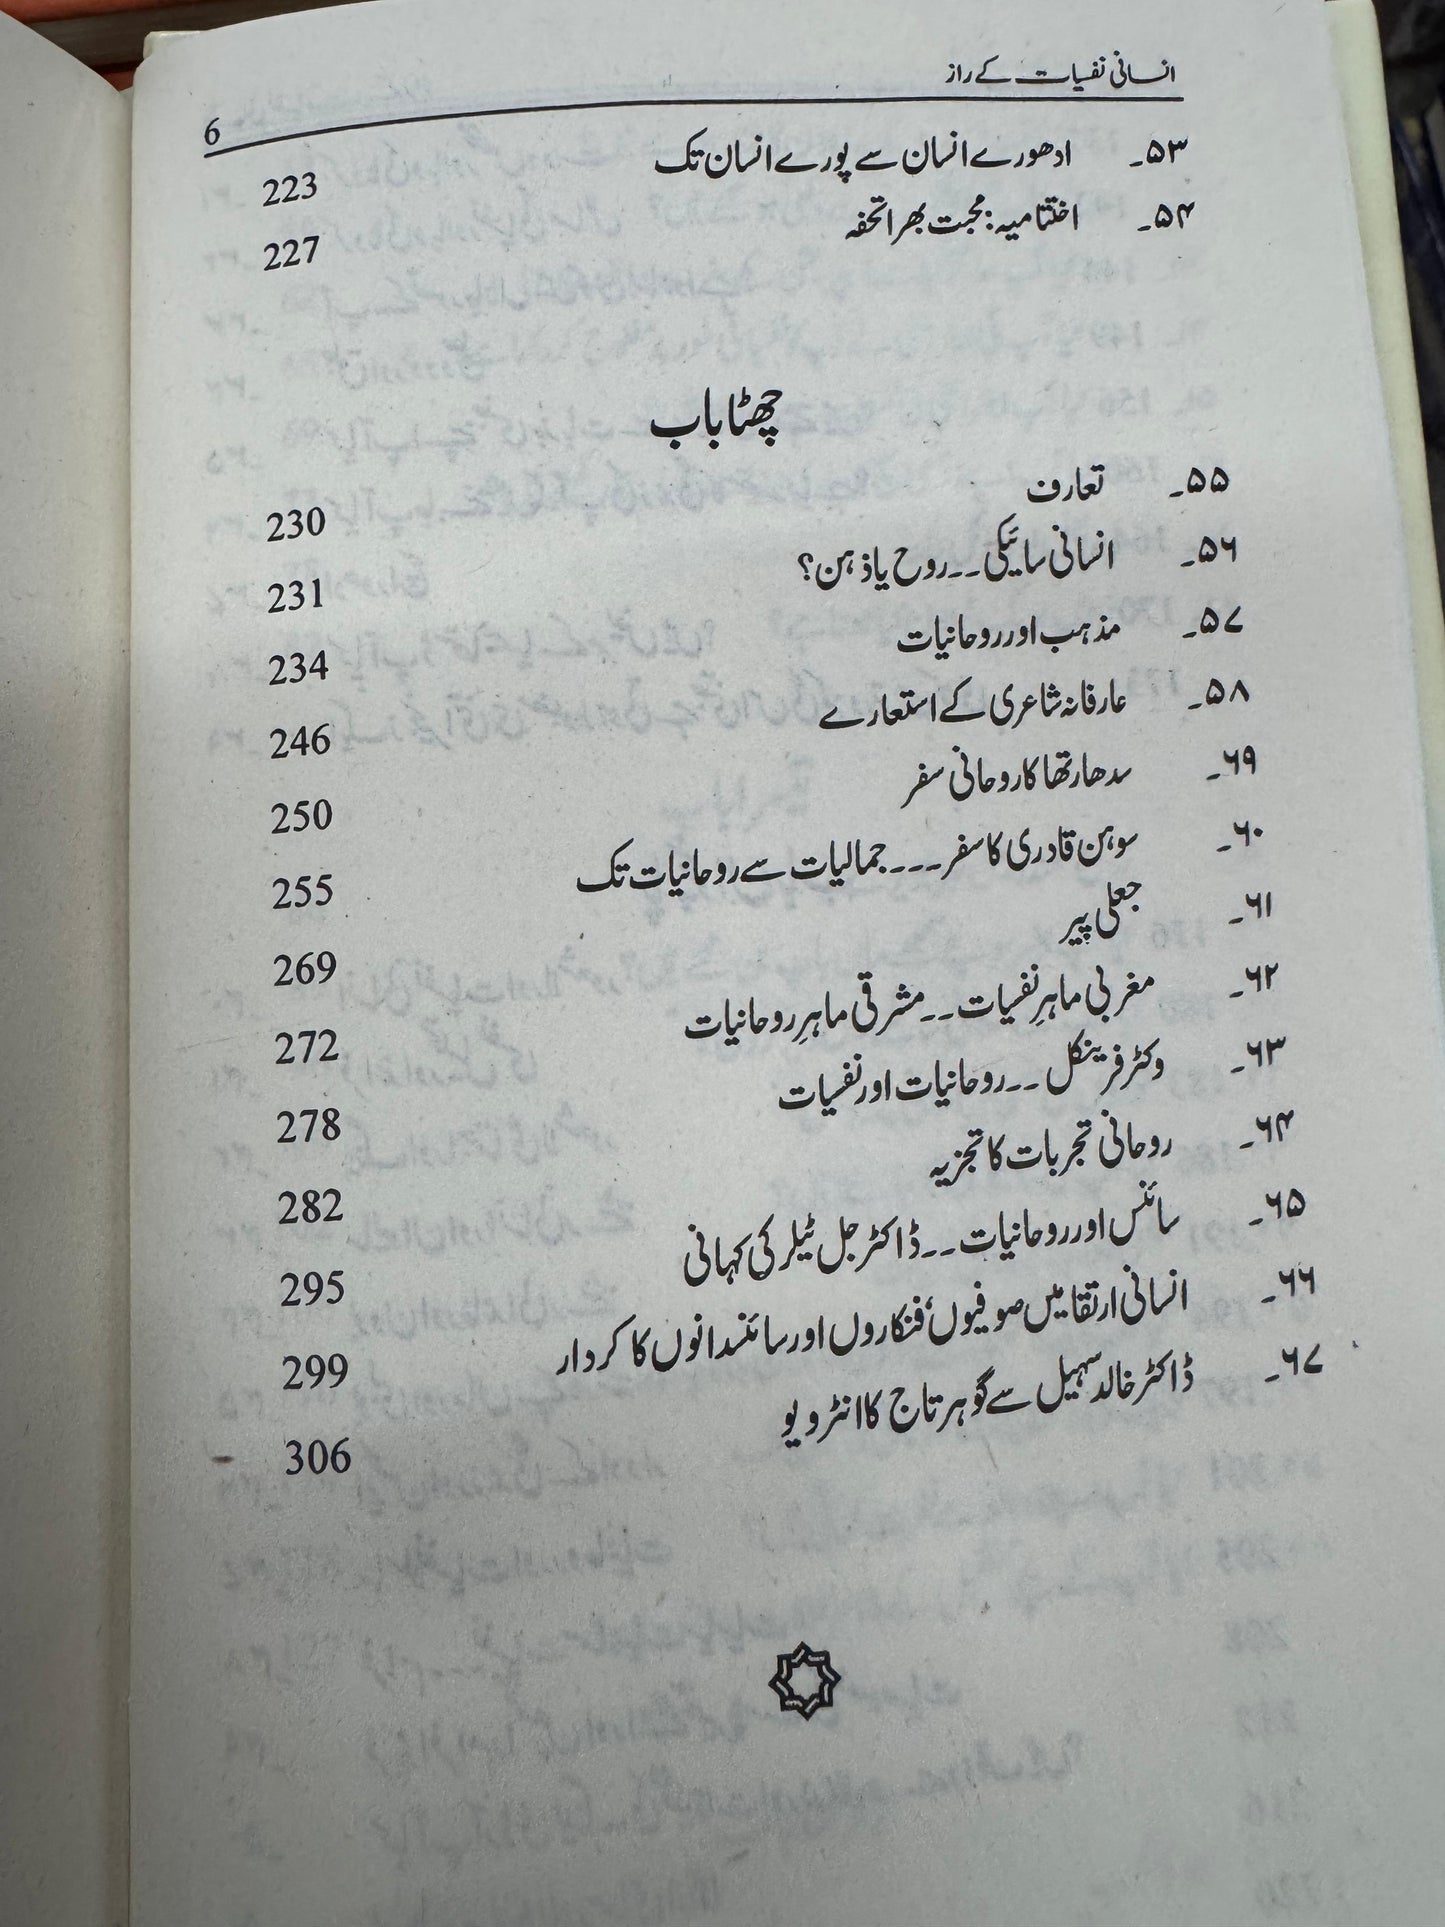 انسانی نفسیات کے راز
6
۵۳۔ ادھورے انسان سے پورے انسان تک 223
۵۴۔ اختتامیہ: محبت بھرا تحفہ 227
چھٹا باب
۵۵۔ تعارف 230
۵۶۔ انسانی سائیکی۔۔روح یا ذہن؟ 231
۵۷۔ مذہب اور روحانیات 234
۵۸۔ عارفانہ شاعری کے استعارے 246
۶۹۔ سدھارتھا کا روحانی سفر 250
۶۰۔ سوہن قادری کا سفر۔۔۔جمالیات سے روحانیات تک 255
۶۱۔ جعلی پیر 269
۶۲۔ مغربی ماہرِ نفسیات۔۔مشرقی ماہرِ روحانیات 272
۶۳۔ وکٹر فرینکل۔۔روحانیات اور نفسیات 278
۶۴۔ روحانی تجربات کا تجزیہ 282
۶۵۔ سائنس اور روحانیات۔۔ڈاکٹر جل ٹیلر کی کہانی 295
۶۶۔ انسانی ارتقا میں صوفیوں، فنکاروں اور سائنسدانوں کا کردار 299
۶۷۔ ڈاکٹر خالد سہیل سے گوہر تاج کا انٹرویو 306